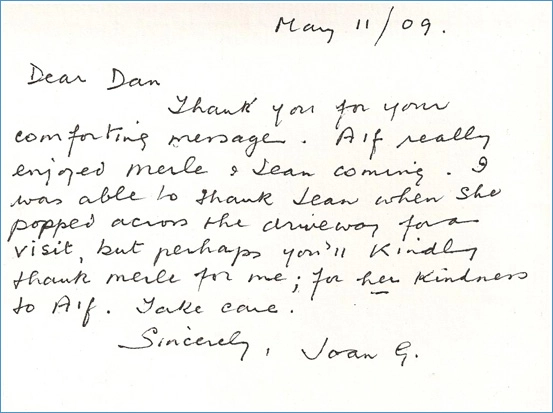 May 11/09.
Dear Dan
Thank you for your
comforting message. Alf really
enjoyed Merle & Jean coming. I
was able to thank Jean when she
popped across the driveway for a
visit, but perhaps you'll Kindly
thank merle for me; for her Kindness
to Alf. Take care.
Sincerely, Joan G.